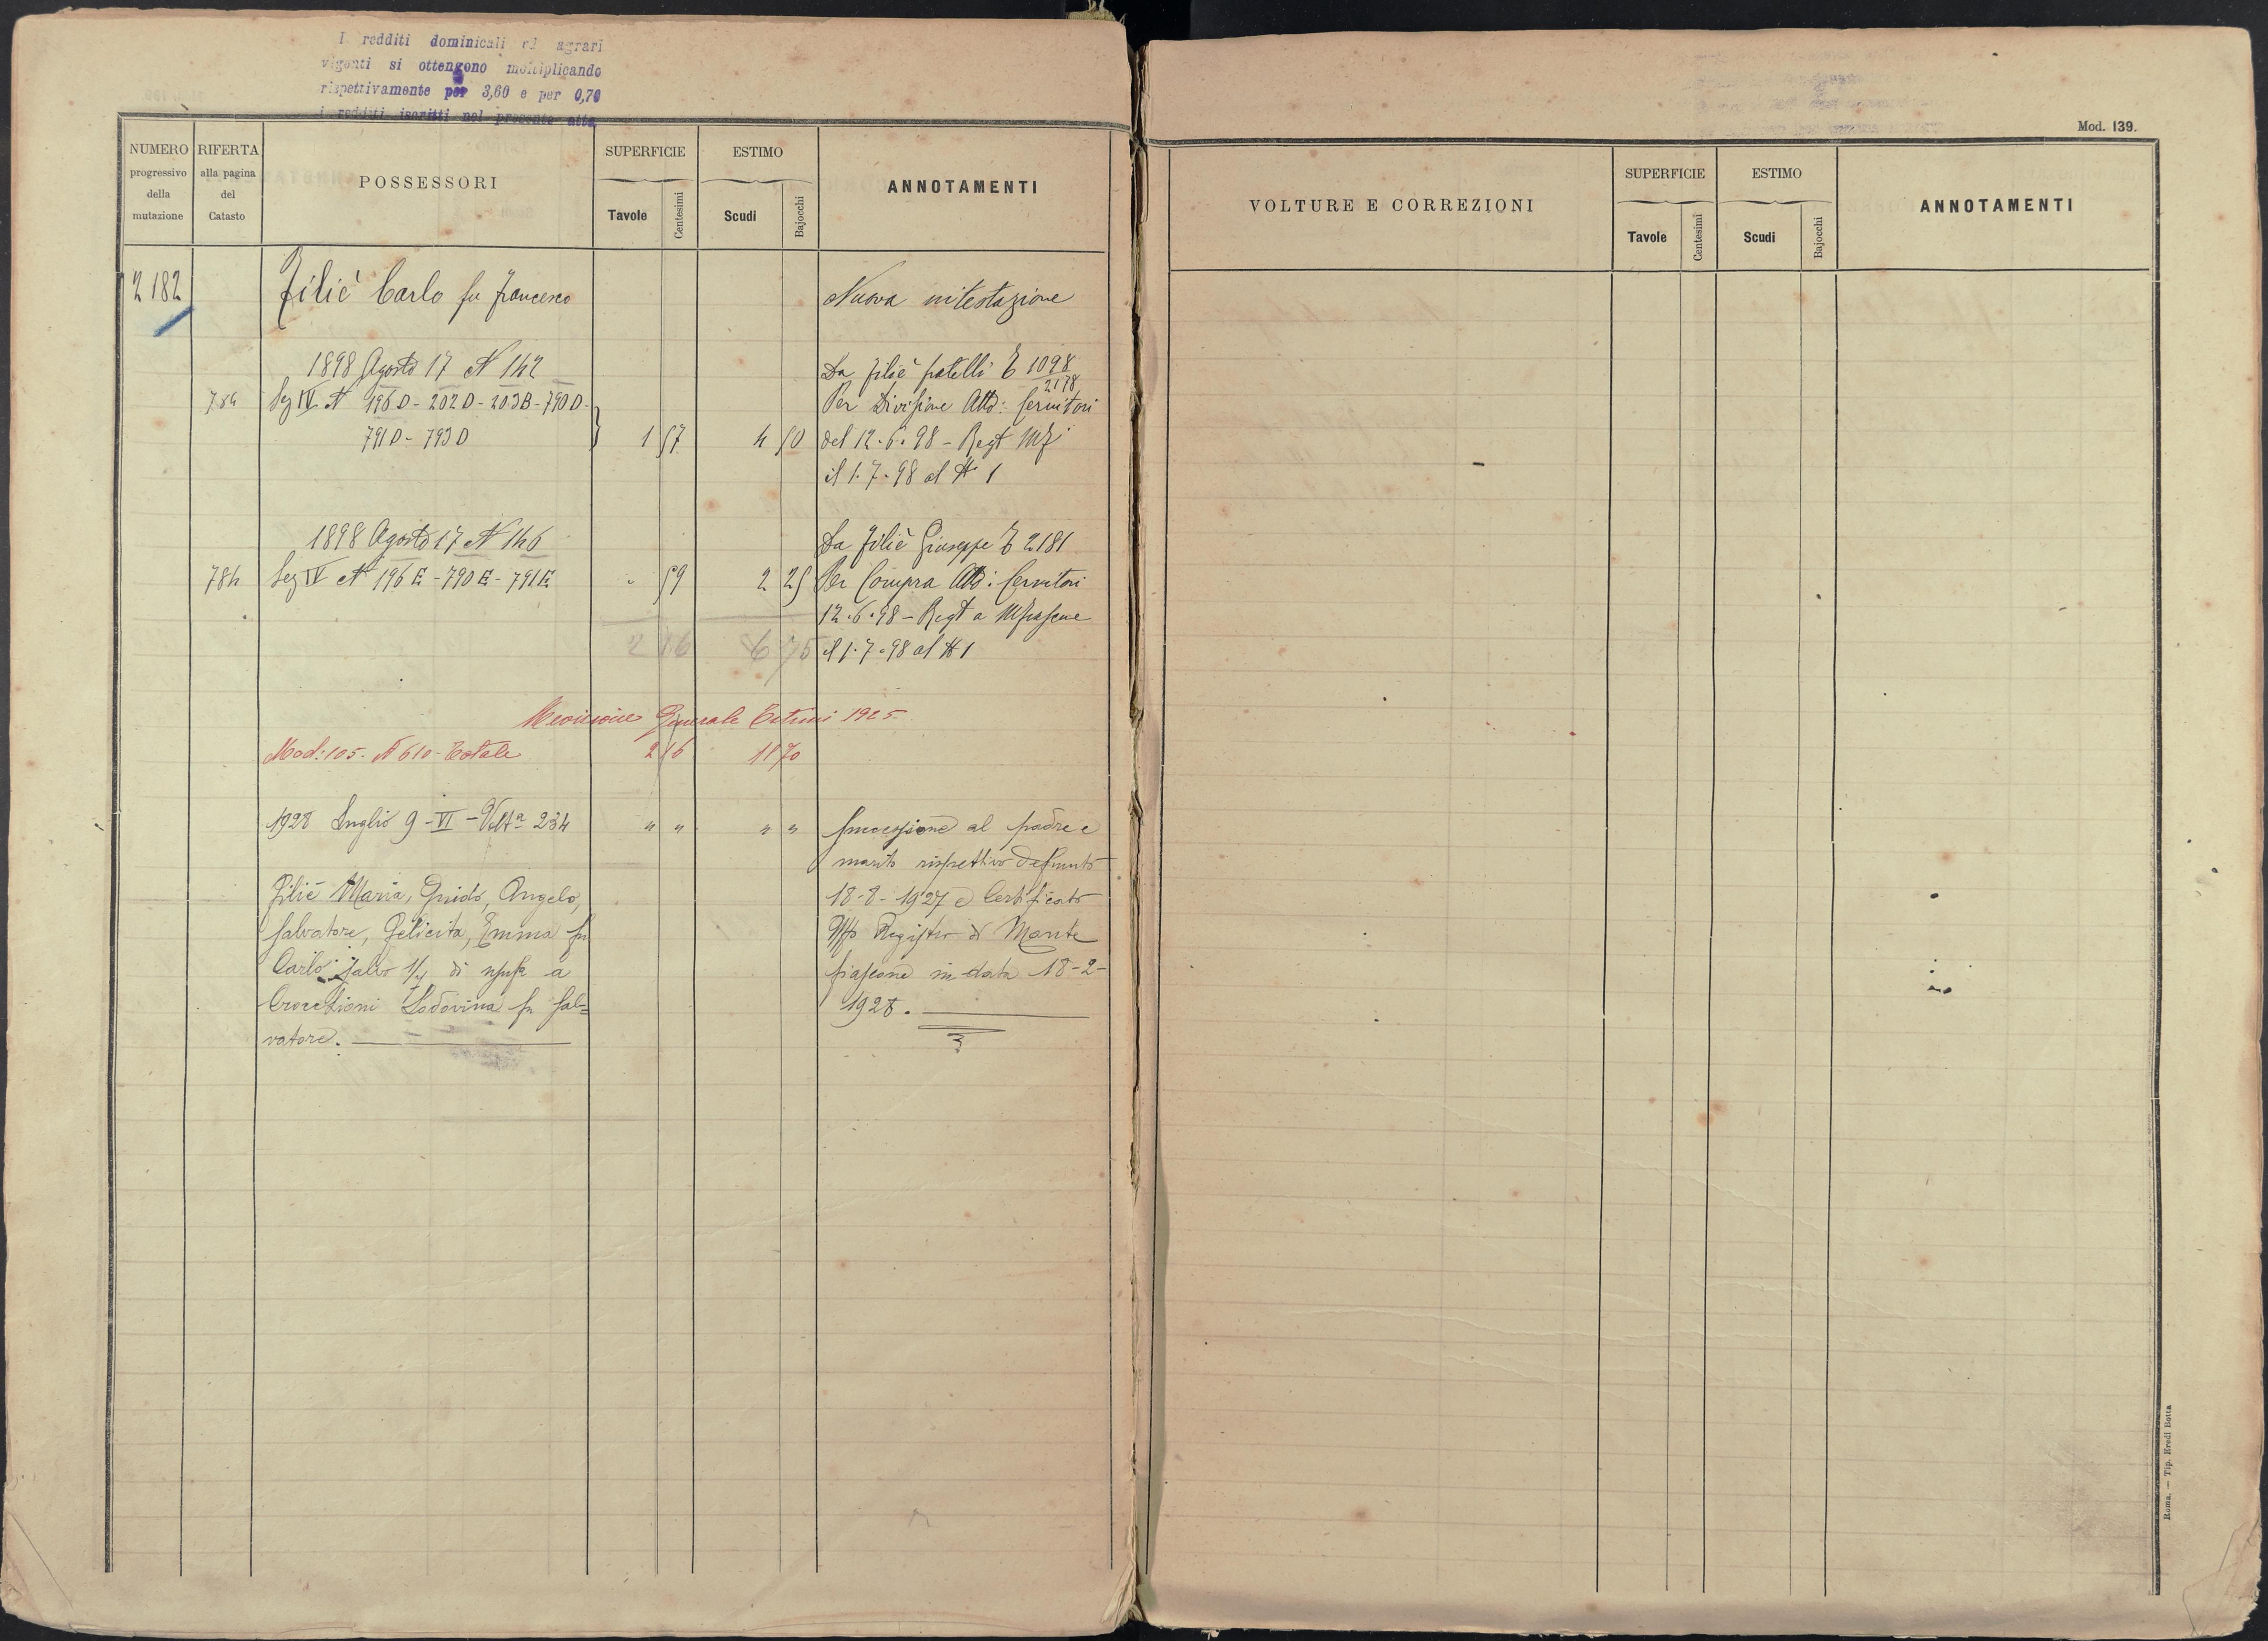 I redditi dominicali ed agrari
vigenti si ottengono moltiplicando
rispettivamente per 3,60 e per 0,70
i redditi iscritti nel presente atto
NUMERO progressivo della mutazione
RIFERTA alla pagina del Catasto
POSSESSORI
SUPERFICIE
Tavole
Centesimi
ESTIMO
Scudi
Bajocchi
ANNOTAMENTI
2182
Filiè Carlo fu Francesco
Nuova intestazione
1898 Agosto 17 N 142
Da Filiè fratelli E 1098
2178
784 Sez IV N 196 D - 202 D - 203 B - 790 D -
Per Divisione Atto: Cernitori
791 D - 793 D 1 57 4 50
del 12.6.98 - Regt Mfi
il 1.7.98 al N 1
1898 Agosto 17 N 146
Da Filiè Giuseppe E 2181
784 Sez IV N 196 E - 790 E - 791 E " 59 2 25
Per Compra Atto: Cernitori
12.6.98 - Regt a Mfiascone
2 16 6 75
il 1.7.98 al N 1
Revisione Generale Estimi 1925
Mod: 105. N 610 - Totale 2 16 11 70
1928 Luglio 9 - VI - Volta 234 " " " "
Successione al padre e
marito rispettivo defunto
18-8-1927 e Certificato
Uffo Registro di Monte
fiascone in data 18-2-
1928.
Filiè Maria, Guido, Angelo,
Salvatore, Felicita, Emma fu
Carlo, salvo 1/4 di usufr. a
Crocetioni Lodovina fu Sal=
vatore.
Mod. 139.
VOLTURE E CORREZIONI
SUPERFICIE
Tavole
Centesimi
ESTIMO
Scudi
Bajocchi
ANNOTAMENTI
Roma, — Tip. Eredi Botta